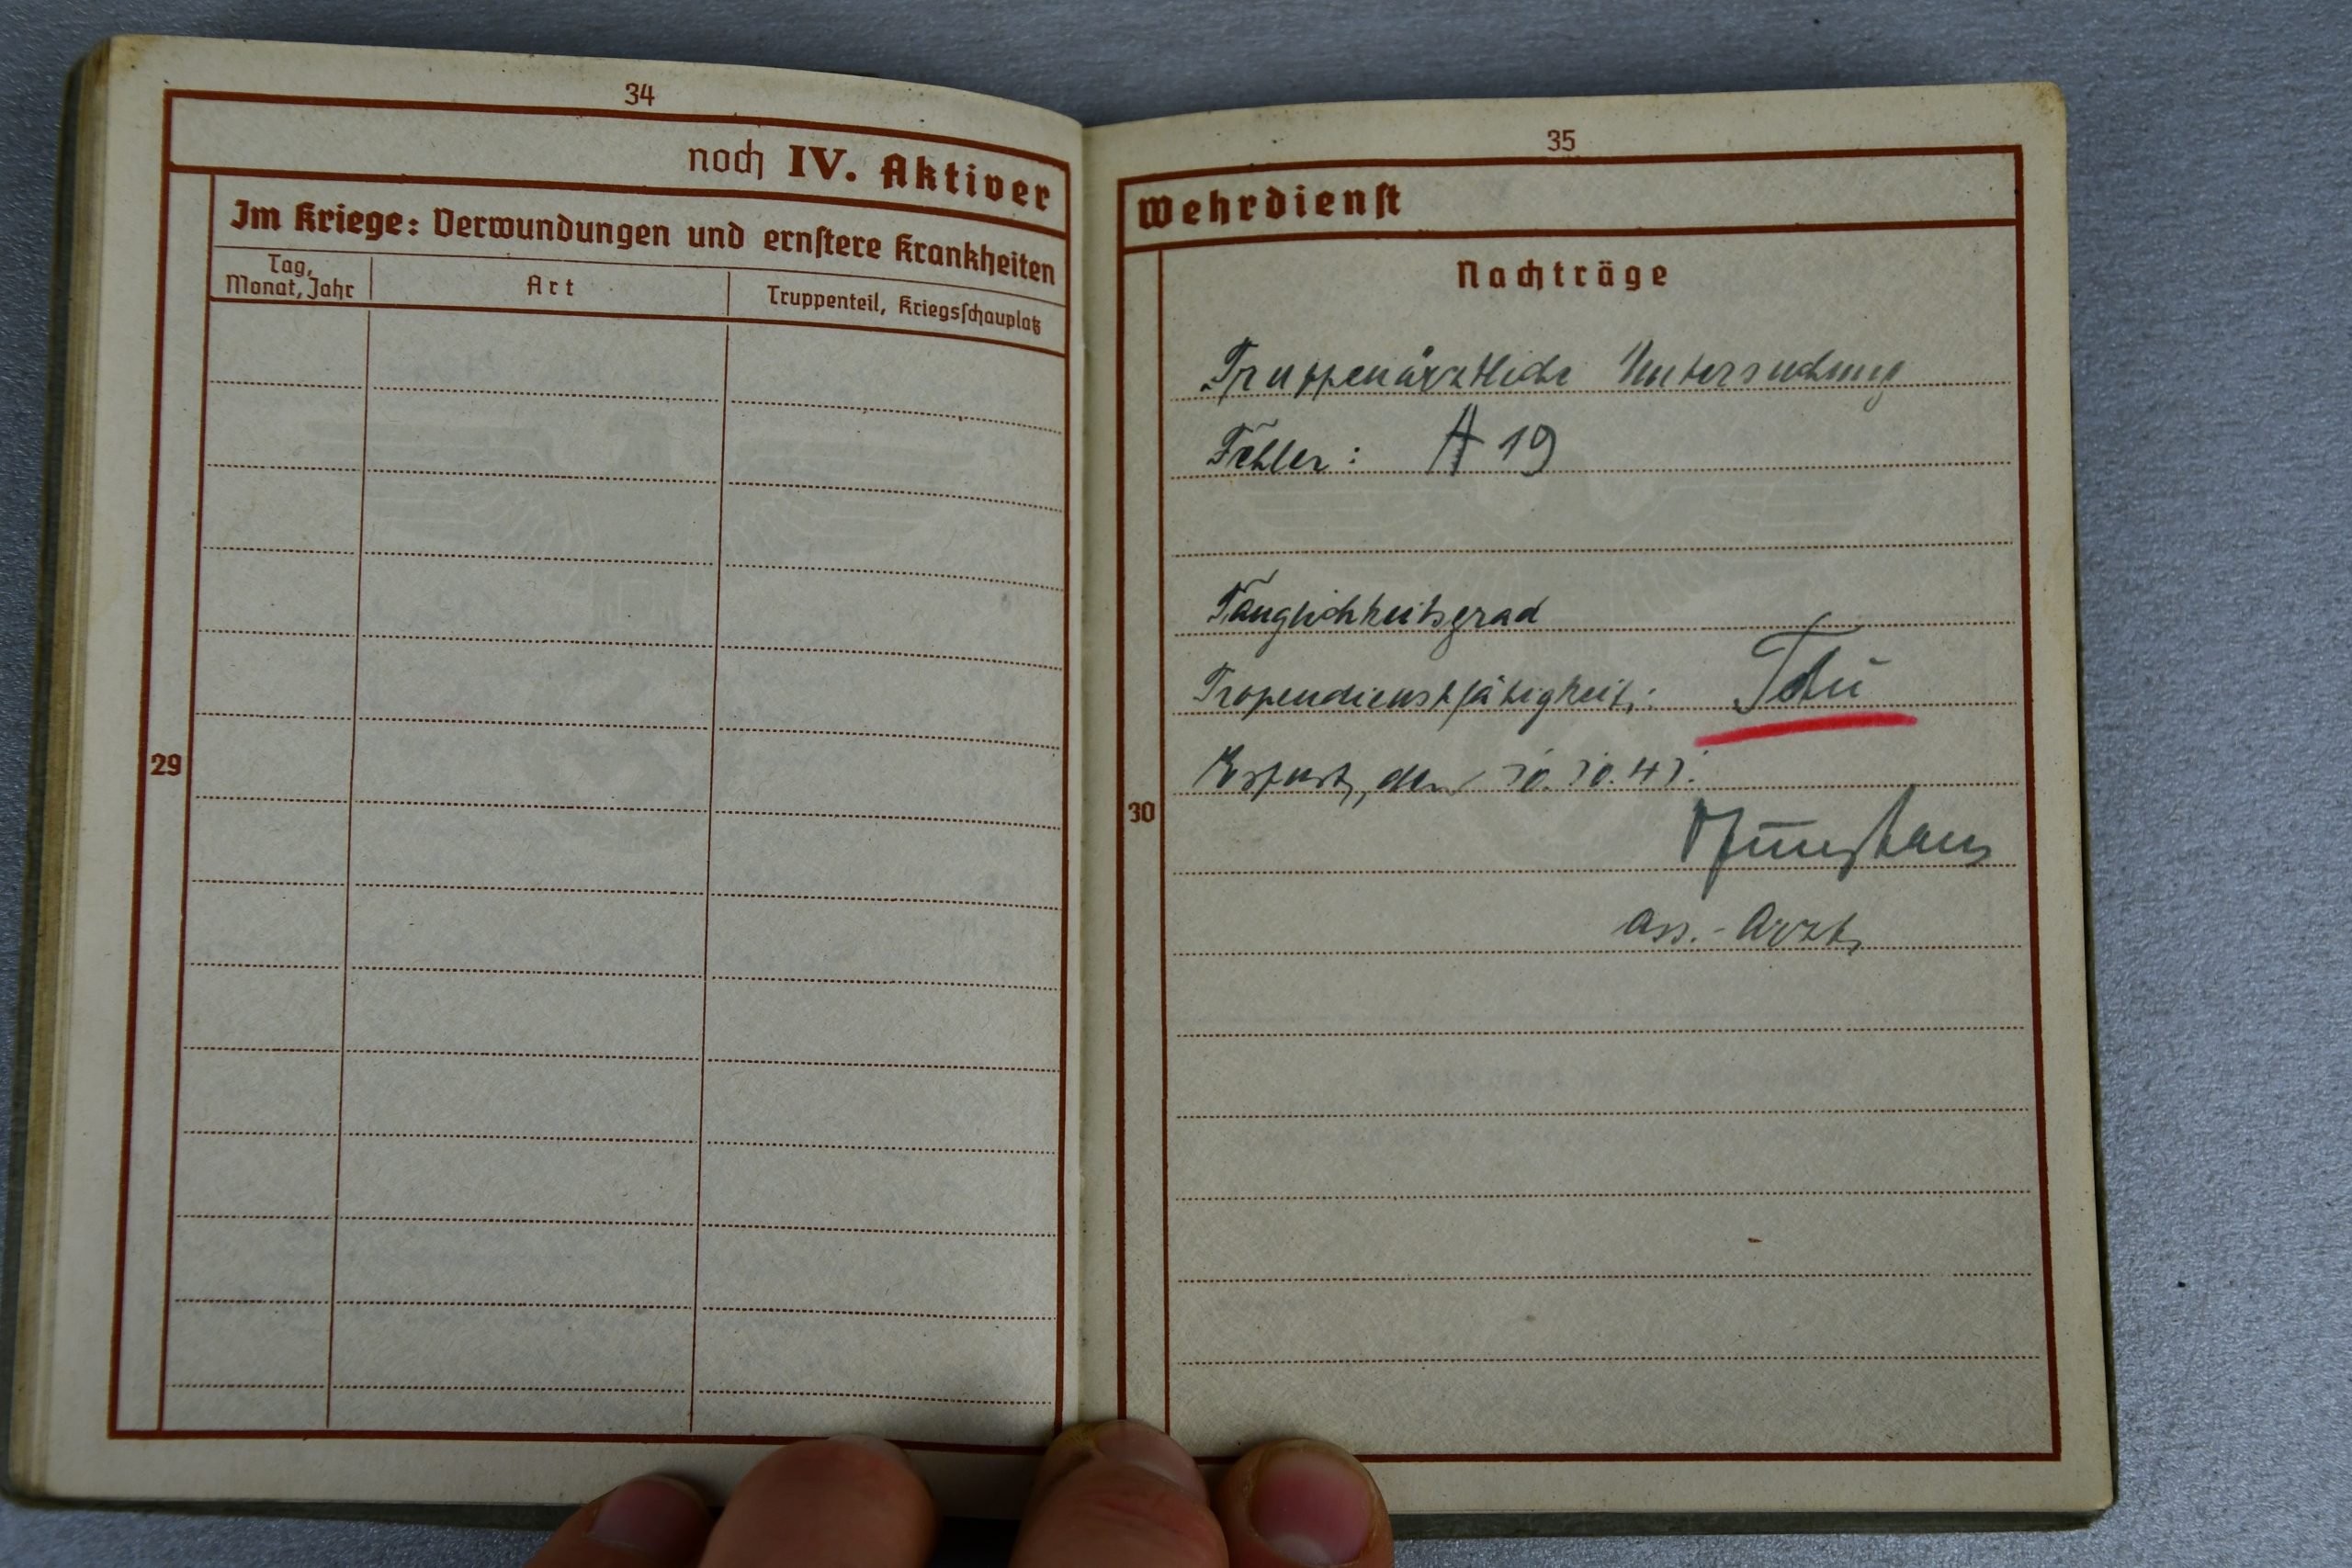 34
noch IV. Aktiver
Im Kriege: Verwundungen und ernstere Krankheiten
Tag, Monat, Jahr
Art
Truppenteil, Kriegsschauplatz
29
35
Wehrdienst
Nachträge
Truppenärztliche Untersuchung
Fehler: A 19
Tauglichkeitsgrad
Tropendienstfähigkeit:
Erfurt, den
30
Ass.-Arzt